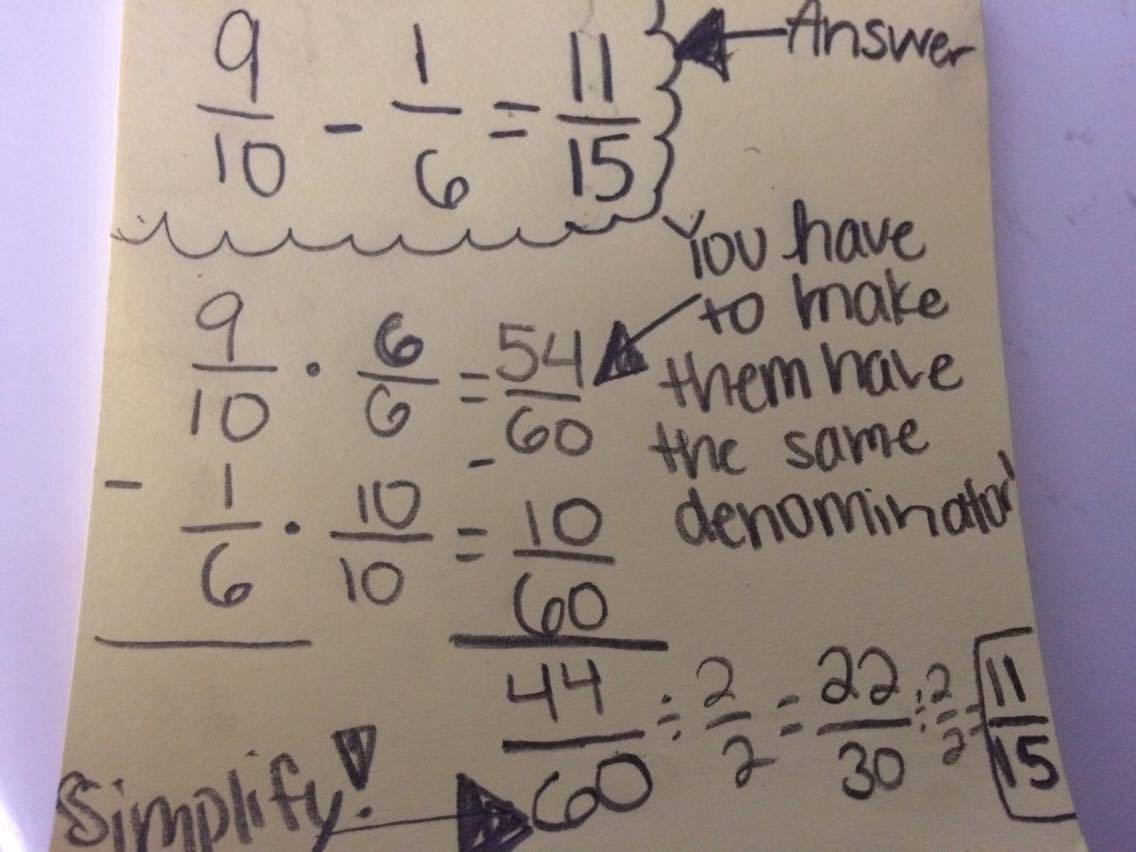 9/10 - 1/6 = 11/15
Answer
9/10 · 6/6 = 54/60
You have
to make
them have
the same
denominator
-
- 1/6 · 10/10 = 10/60
44/60 ÷ 2/2 = 22/30 ÷ 2/2 = 11/15
Simplify!